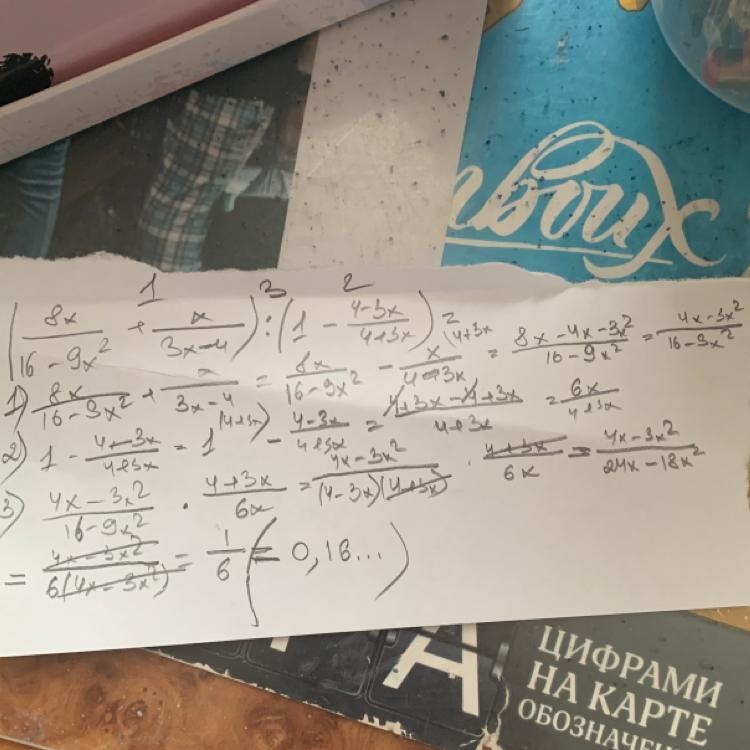 твоих
1 3 2
(8x/(16-9x²) + x/(3x-4)) : (1 - (4-3x)/(4+3x)) =
1) 8x/(16-9x²) + x/(3x-4) = 8x/(16-9x²) - x/(4-3x) (4+3x = (8x-4x-3x²)/(16-9x²) = (4x-3x²)/(16-9x²)
2) 1 - (4-3x)/(4+3x) = 1 (4+3x) - (4-3x)/(4+3x) = (4+3x-4+3x)/(4+3x) = 6x/(4+3x)
3) (4x-3x²)/(16-9x²) · (4+3x)/6x = (4x-3x²)/((4-3x)(4+3x)) · (4+3x)/6x = (4x-3x²)/(24x-18x²)
= (4x-3x²)/(6(4x-3x²)) = 1/6 (= 0,16...)
А
ЦИФРАМИ
НА КАРТЕ